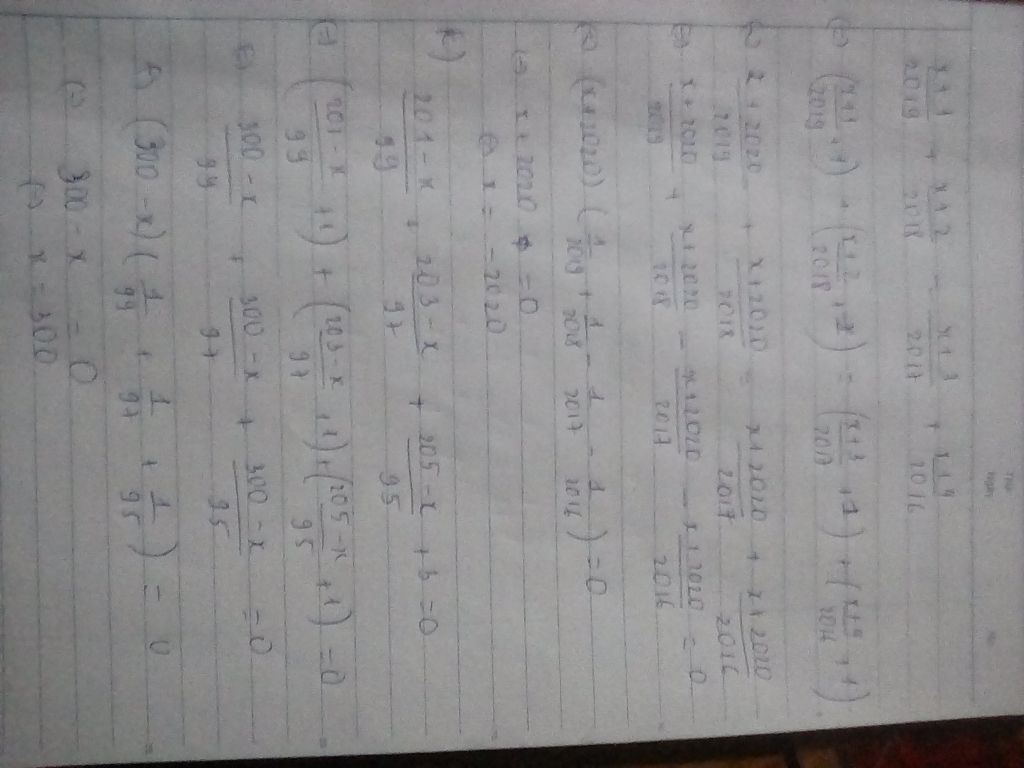 x+1/2019 + x+2/2018 = x+3/2017 + x+4/2016
(=) (x+1/2019 + 1) + (x+2/2018 + 1) = (x+3/2017 + 1) + (x+4/2016 + 1)
(=) x+2020/2019 + x+2020/2018 = x+2020/2017 + x+2020/2016
(=) x+2020/2019 + x+2020/2018 - x+2020/2017 - x+2020/2016 = 0
(=) (x+2020) (1/2019 + 1/2018 - 1/2017 - 1/2016) = 0
(=) x+2020 = 0
(=) x = -2020
201-x/99 + 203-x/97 + 205-x/95 + 3 = 0
(=) (201-x/99 + 1) + (203-x/97 + 1) + (205-x/95 + 1) = 0
(=) 300-x/99 + 300-x/97 + 300-x/95 = 0
(300-x) (1/99 + 1/97 + 1/95) = 0
(=) 300-x = 0
(=) x = 300